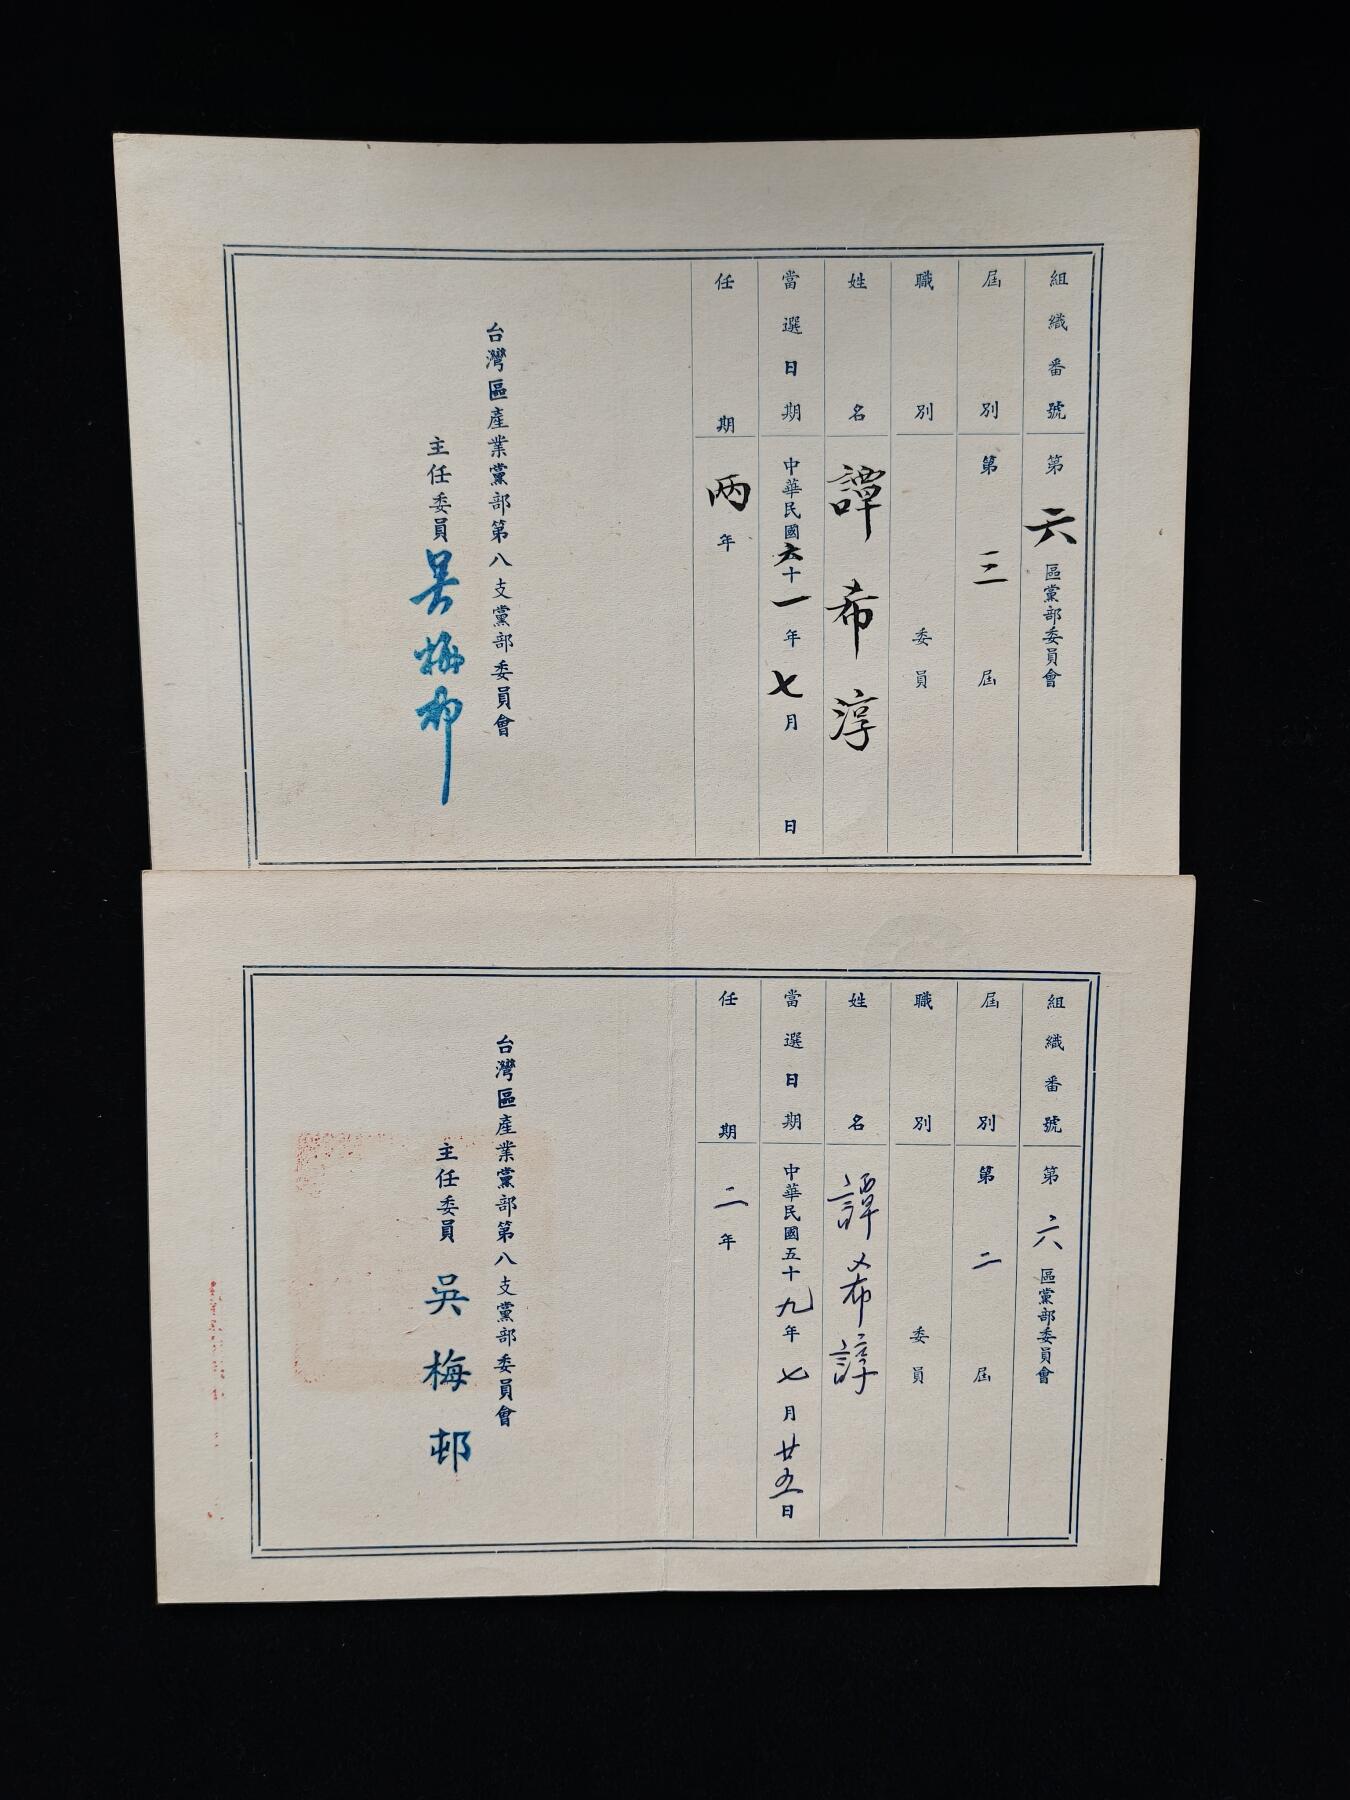 組織番號 第六區黨部委員會
屆別 第三屆
職別 委員
姓名 譚希淳
當選日期 中華民國六十一年七月 日
任期 兩年
台灣區產業黨部第八支黨部委員會
主任委員 吳梅邨
組織番號 第六區黨部委員會
屆別 第二屆
職別 委員
姓名 譚希諄
當選日期 中華民國五十九年七月廿五日
任期 二年
台灣區產業黨部第八支黨部委員會
主任委員 吳梅邨